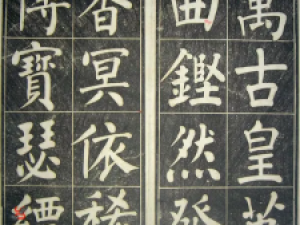 萬古皇英
曲鏗然發
杳冥依稀
寶瑟縹